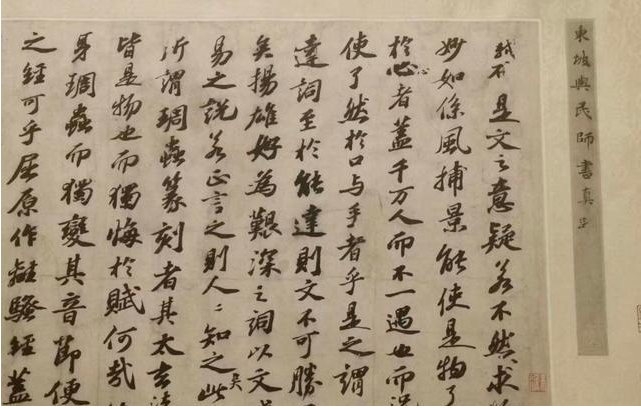 東坡與民師書真
是文之意疑若不然求
妙如係風捕景能使是物了
於心者蓋千万人而不一遇也而況
使了然於口与手者乎是之謂
達詞至於能達則文不可勝
矣揚雄好為艱深之詞以文
易之說若正言之則人〻知之矣此
所謂琱蟲篆刻者其太玄
皆是物也而獨悔於賦何哉
身琱蟲而獨變其音節便
之經可乎屈原作離騷經蓋